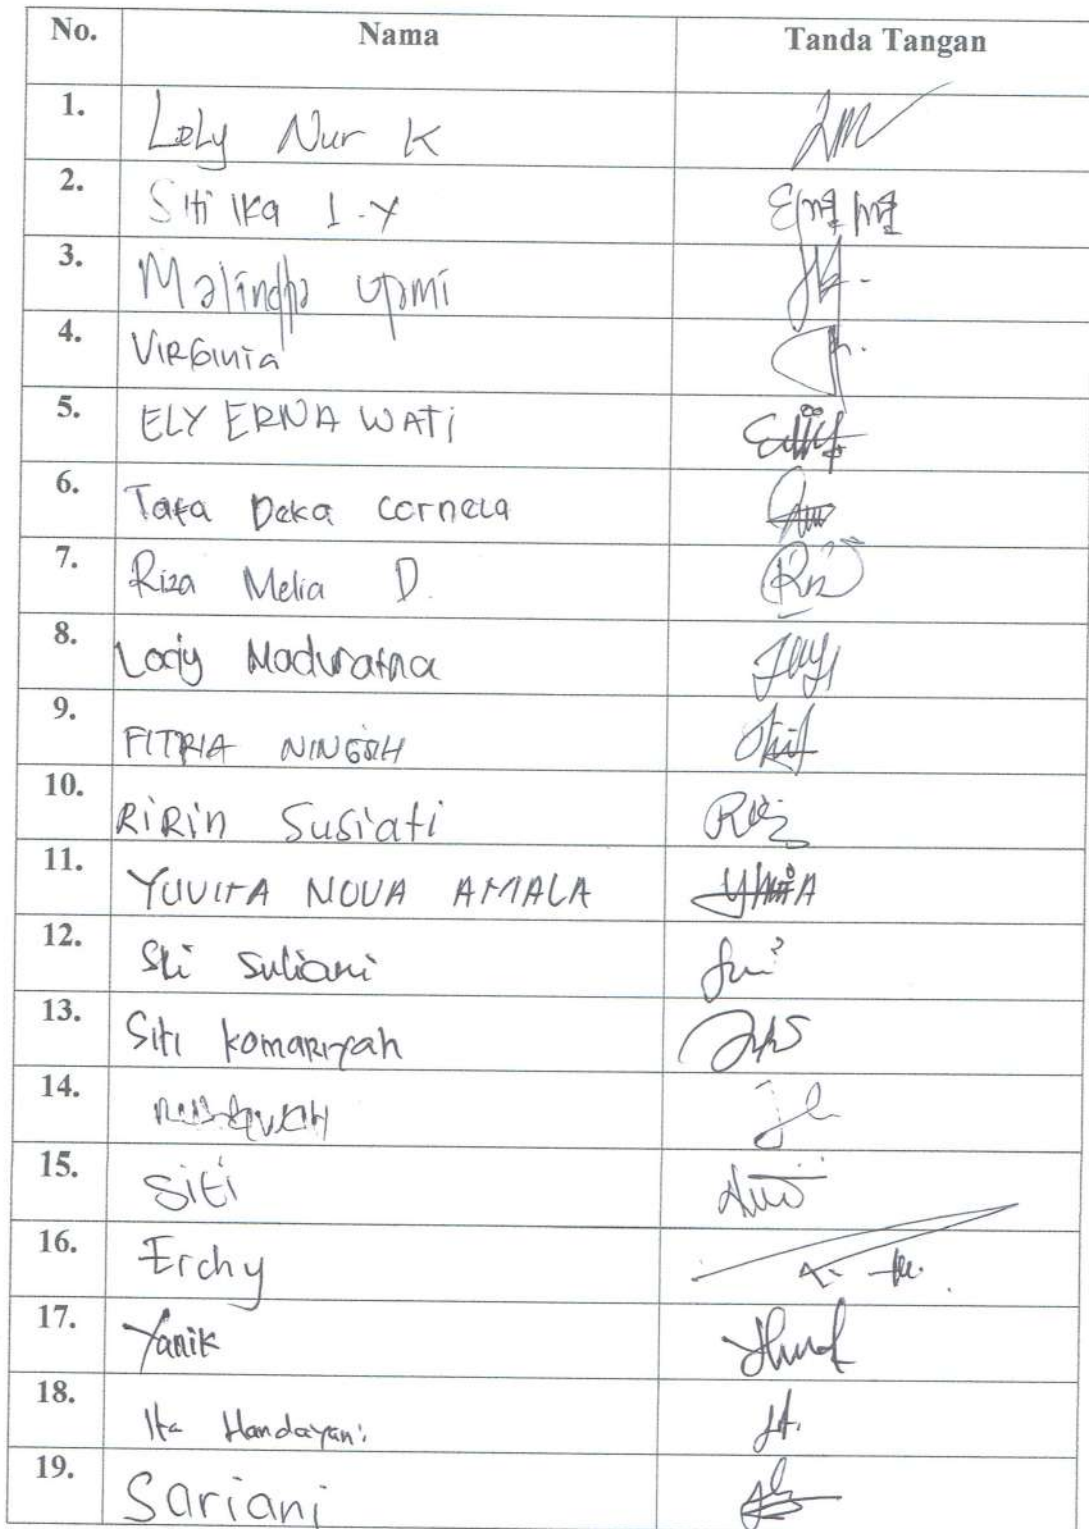 No. Nama Tanda Tangan
1. Lely Nur K
2. Siti Ika I-Y
3. Malindha Upmi
4. VIRGINIA
5. ELY ERNA WATI
6. Tata Deka Cornela
7. Riza Melia D.
8. Lody Maduratna
9. FITRIA NINGSIH
10. RIRIN Susiati
11. YUVITA NOVA AMALA
12. Sri Suliani
13. Siti Komariyah
14.
15. Siti
16. Erchy
17. Yanik
18. Ita Handayani
19. Sariani